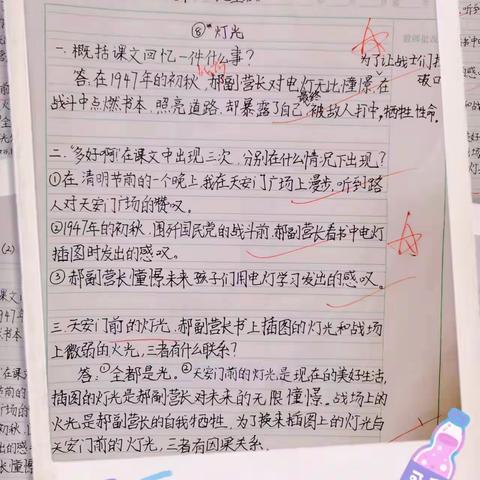 ⑧*灯光
一、概括课文回忆一件什么事?
为了让战士们找
答:在1947年的初秋,郝副营长对电灯无比憧憬,在
战斗中点燃书本,照亮道路,却暴露了自己,最终被敌人打中,牺牲性命。
二、"多好啊"在课文中出现三次,分别在什么情况下出现?
①在清明节前的一个晚上,我在天安门广场上漫步,听到路
人对天安门广场的赞叹。
②1947年的初秋,围歼国民党的战斗前,郝副营长看书中电灯
插图时发出的感叹。
③郝副营长憧憬未来孩子们用电灯学习发出的感叹。
三、天安门前的灯光、郝副营长书上插图的灯光和战场
上微弱的火光,三者有什么联系?
答:①全都是光。②天安门前的灯光是现在的美好生活,
插图的灯光是郝副营长对未来的无限憧憬。战场上的
火光是郝副营长的自我牺牲,为了换来插图上的灯光与
天安门前的灯光,三者有因果关系。